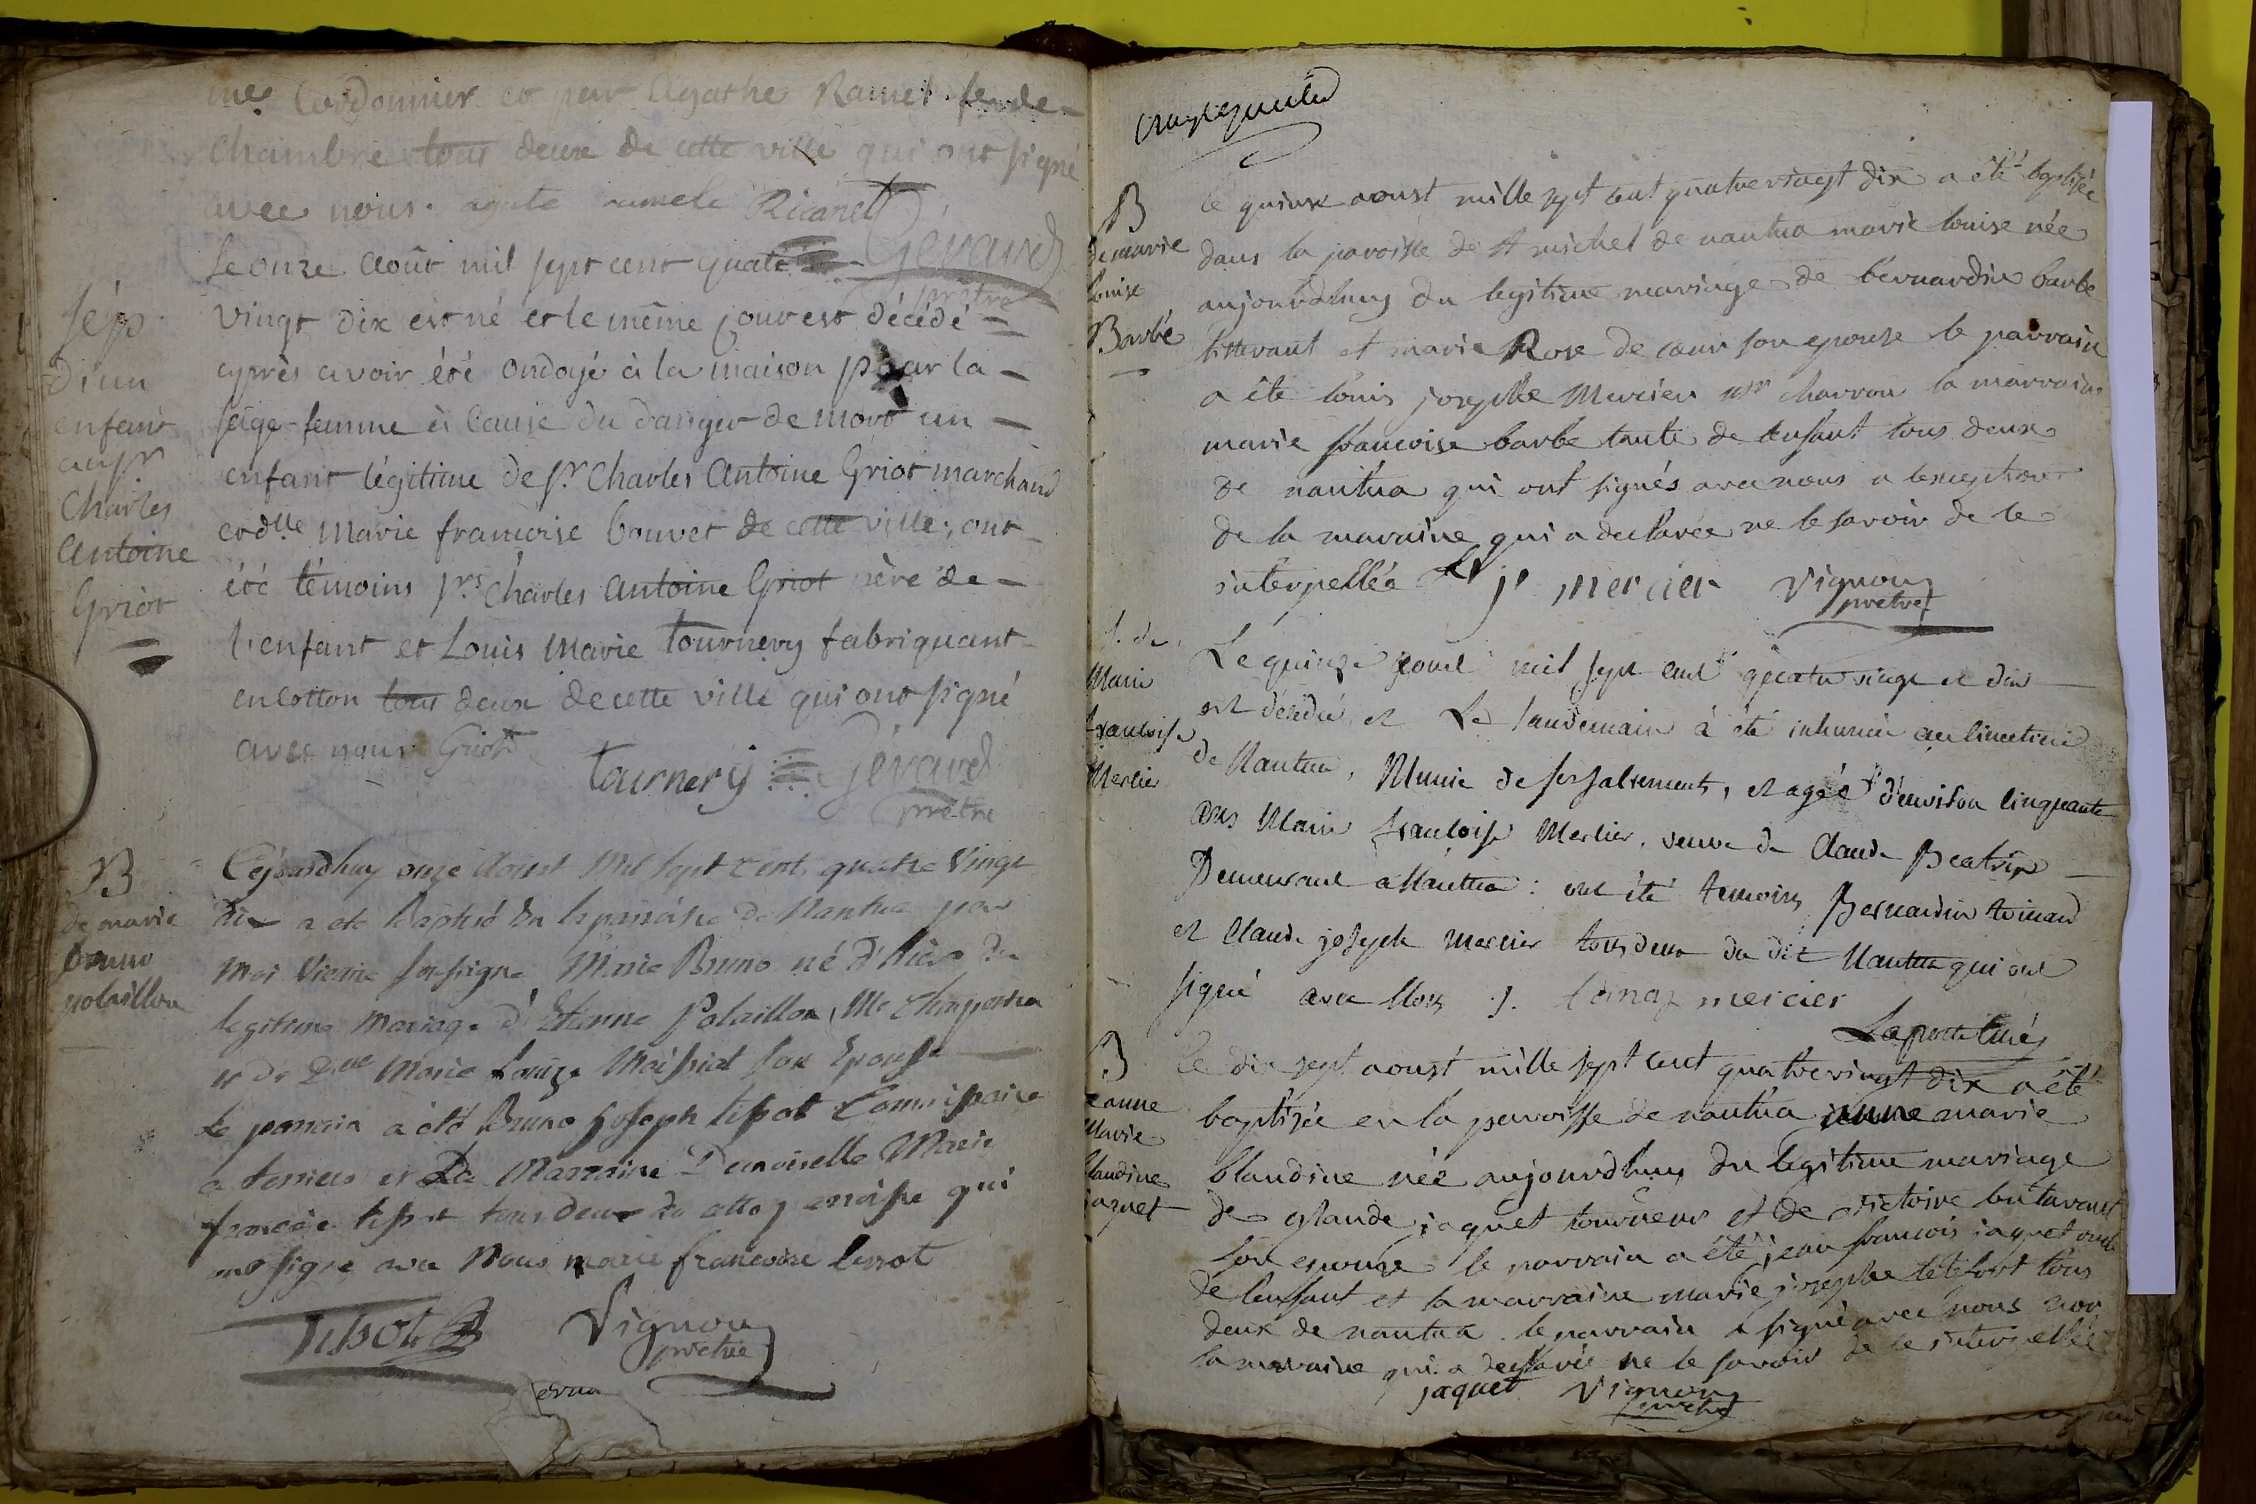 me Cordonnier et par Agathe Ramel fe de-
Chambre tous deux de cette ville qui ont signé
avec nous. agate ramele Ricanet Gérard
prêtre
Sép
d'un
enfant
au Sr
Charles
Antoine
Griot
Le onze Août mil sept cent quatre
vingt dix est né et le même jour est décédé-
après avoir été ondoyé à la maison par la-
sage-femme à cause du danger de mort un-
enfant légitime de Sr. Charles Antoine Griot marchand
et dlle Marie françoise bouvet de cette ville; ont-
été témoins Srs Charles Antoine Griot père de-
l'enfant et Louis Marie tournery fabriquant
en cotton tous deux de cette ville qui ont signé
avec nous Griot
tournery Gérard
prêtre
B
de marie
bruno
polaillon
Cejourdhuy onze Aoust Mil sept cent quatre Vingt
dix a ete baptisé en la paroisse de Nantua par
moi Vicaire soussigné Marie Bruno né d'hier du
legitime mariage d'Etienne Polaillon, Me Chapelier
et de Dlle Marie Louize Maissiat son Epouse
le parrain a été Bruno Joseph tissot Commissaire
a terriers et La Marraine Demoiselle Marie
francoise tissot tous deux de cette paroisse qui
ont signé avec Nous marie francoise tissot
tissot Vignon
prêtre
B
de marie
louise
Barbe
le quinze aoust mille sept cent quatrevingt dix a été baptisée
dans la paroisse de st michel de nantua marie louise née
aujourdhuy du legitime mariage de bernardin barbe
tisserant et marie Rose de coeur son epouse le parrain
a été louis josephe Mercier mr charron la marraine
marie francoise barbe tante de lenfant tous deux
de nantua qui ont signés avec nous a lexception
de la maraine qui a declarée ne le savoir de ce
interpellée Ls js mercier Vignon
prêtre
S. de
Marie
françoise
Mercier
Le quinze aout mil sept cent quatre vingt et dix
est décédée, et Le landemain à été inhumée au cimetiere
de Nantua, Munie de ses sacrements, et agée d'environ cinquante
ans Marie françoise Mercier, veuve de Claude Beatrix
Demeurant a Nantua: ont été temoins Bernardin
et Claude joseph Mercier tous deux du dit Nantua qui ont
signé avec Nous J. mercier
Laporte Curé
B
jeanne
Marie
Claudine
jaquet
le dix sept aoust mille sept cent quatrevingt dix a été
baptisée en la paroisse de nantua jeanne marie
Claudine née aujourdhuy du legitime mariage
de claude jaquet tourneur et de victoire
son epouse le parrain a été jean francois jaquet oncle
de lenfant et la marraine marie josephe tous
deux de nantua. le parrain a signé avec nous non
la maraine qui a declarée ne le savoir de ce interpellée
jaquet Vignon
prêtre